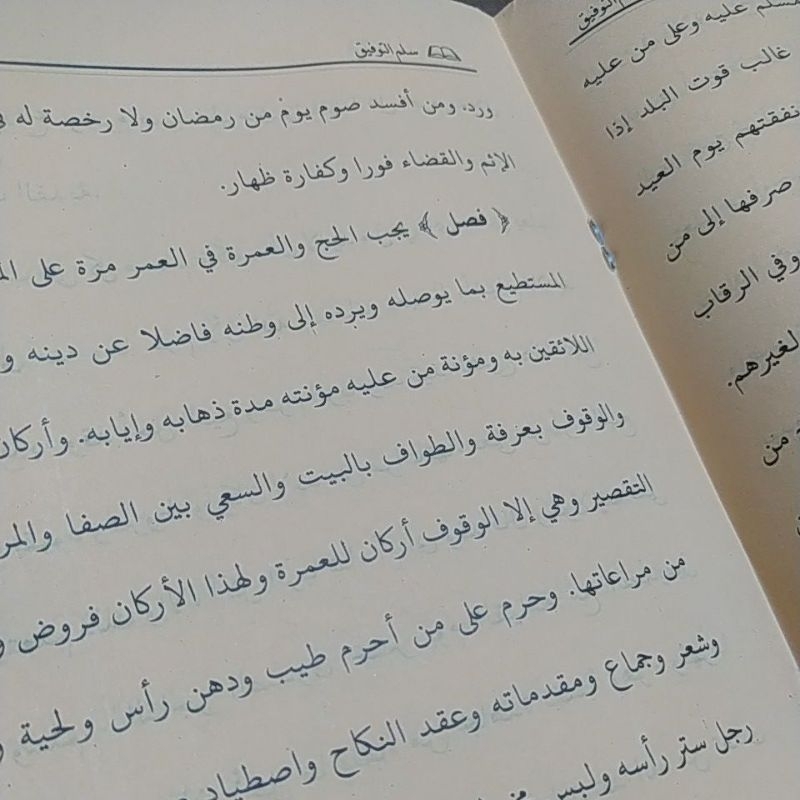 سلم التوفيق
ورد. ومن أفسد صوم يوم من رمضان ولا رخصة له
الإثم والقضاء فورا وكفارة ظهار.
﴿ فصل ﴾ يجب الحج والعمرة في العمر مرة على
المستطيع بما يوصله ويرده إلى وطنه فاضلا عن دينه
اللائقين به ومؤنة من عليه مؤنته مدة ذهابه وإيابه. وأركان
والوقوف بعرفة والطواف بالبيت والسعي بين الصفا
التقصير وهي إلا الوقوف أركان للعمرة ولهذا الأركان فروض
من مراعاتها. وحرم على من أحرم طيب ودهن رأس ولحية
وشعر وجماع ومقدماته وعقد النكاح واصطياد
رجل ستر رأسه ولبس
التوفيق
عليه وعلى من عليه
غالب قوت البلد إذا
نفقتهم يوم العيد
صرفها إلى من
وفي الرقاب
لغيرهم.
من